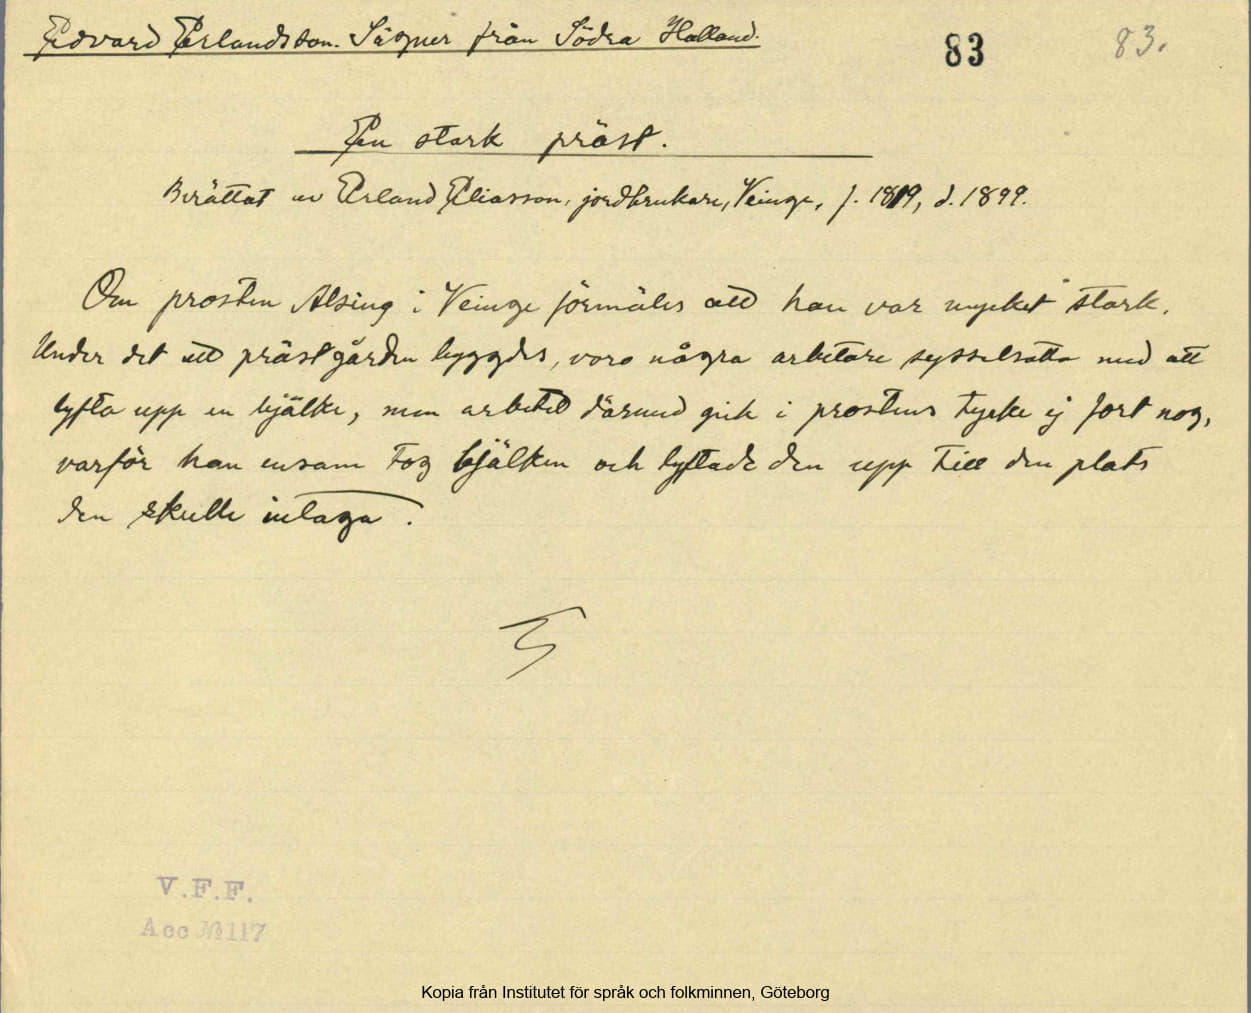 Edvard Erlandsson. Sägner från Södra Halland.
83
83.
En stark präst.
Berättat av Erland Eliasson, jordbrukare, Veinge, f. 1819, d. 1899.
Om prosten Alsing i Veinge förmäles att han var mycket stark.
Under det att prästgården byggdes, voro några arbetare sysselsatta med att
lyfta upp en bjälke, men arbetet därmed gick i prostens tycke ej fort nog,
varför han ensam tog bjälken och lyftade den upp till den plats
den skulle intaga.
V.F.F.
Acc № 117
Kopia från Institutet för språk och folkminnen, Göteborg